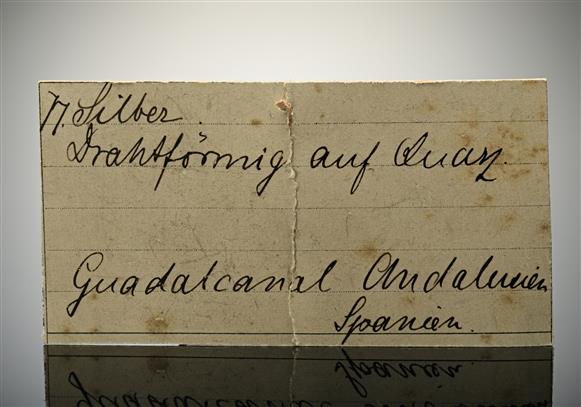 Silber.
Drahtförmig auf Quarz.
Guadalcanal Andalusien
Spanien.